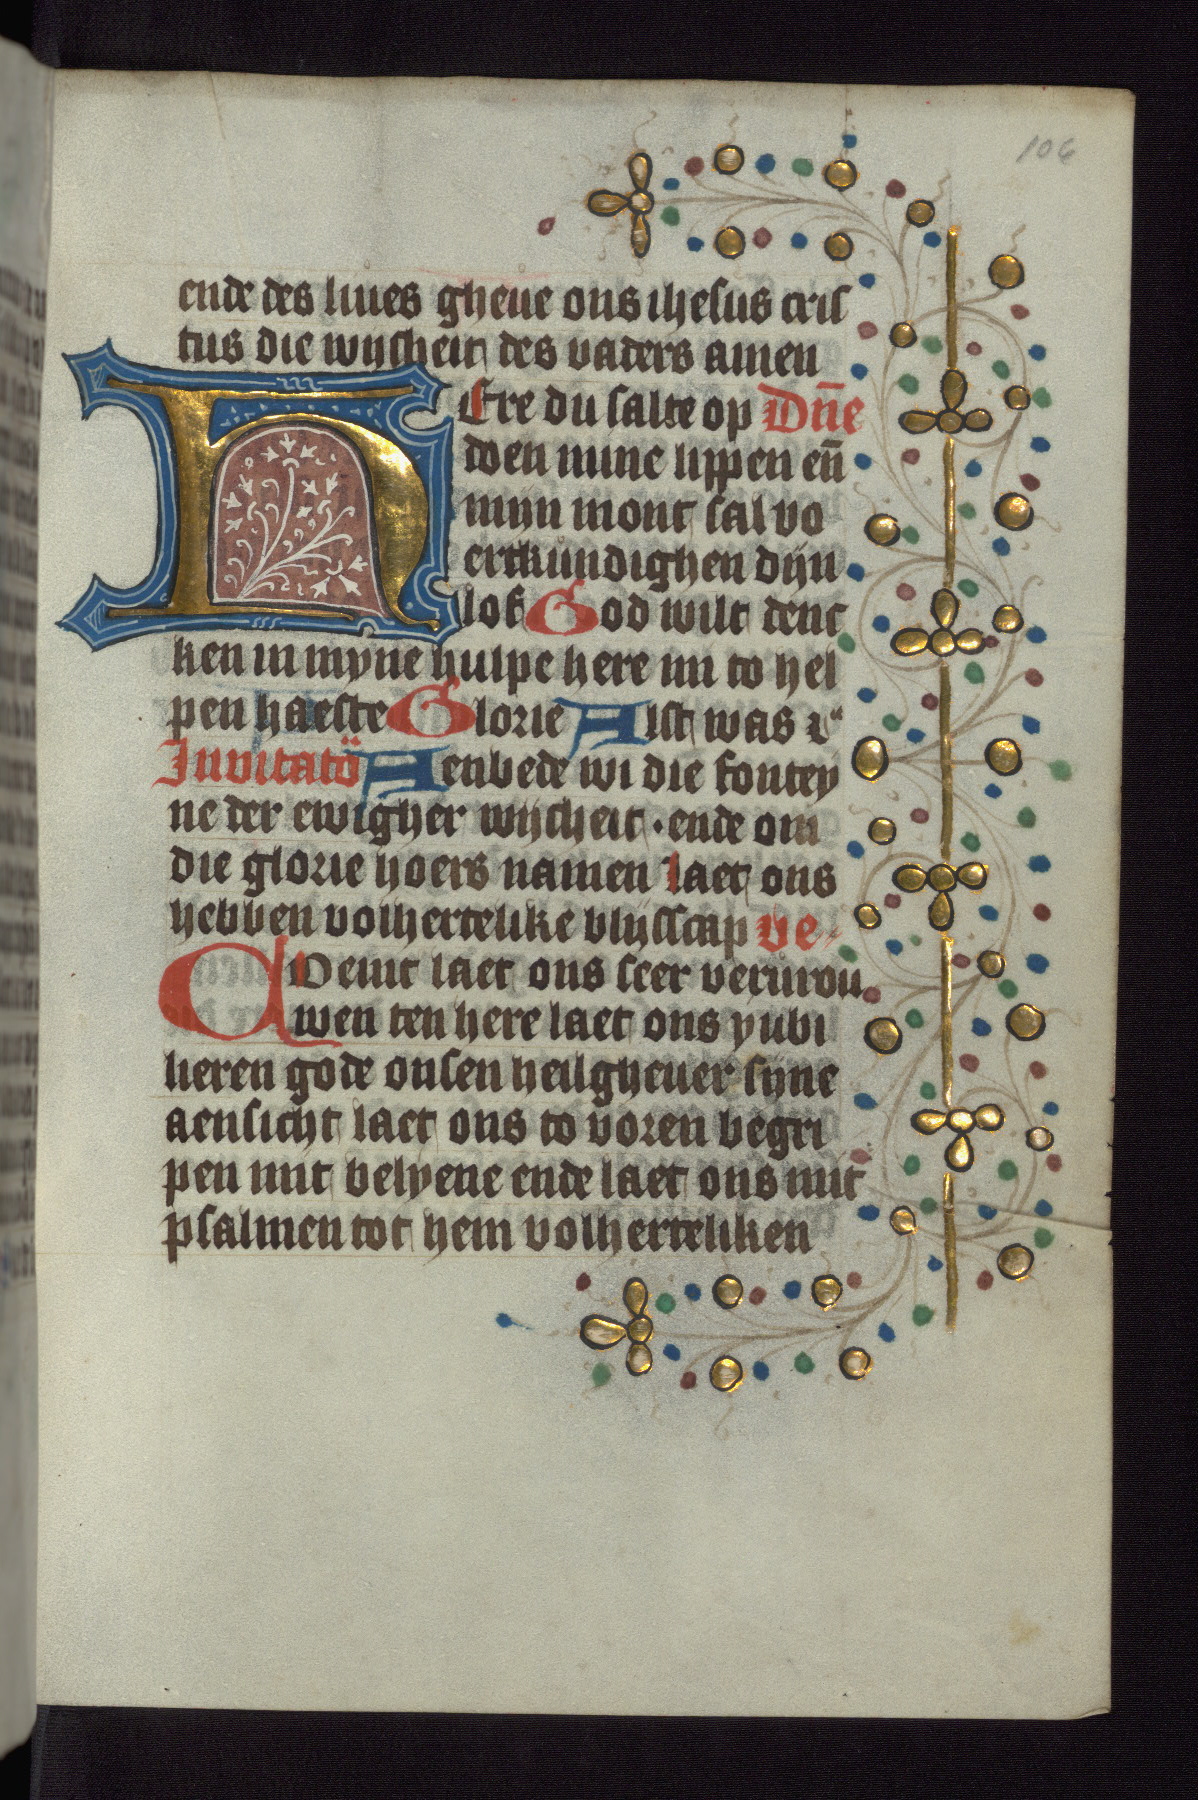 106
ende des liues gheue ons ihesus cris
tus die wijsheit des vaders amen
HEre du salte op Dn̄e
doen mine lippen en̄
mijn mont sal vo
ertkundighen dijn
lof God wilt denc
ken in myne hulpe here mi to hel
pen haeste Glorie Alst was i
Inuitato Aenbede wi die fontey
ne der ewigher wijsheit · ende om
die glorie hoers namen laet ons
hebben volhertelike blijsscap ve
Coemt laet ons seer vervrou
wen ten here laet ons yubi
lieren gode onsen heilgheuer sijne
aensicht laet ons to voren begri
pen mit belyene ende laet ons mit
psalmen tot hem volherteliken